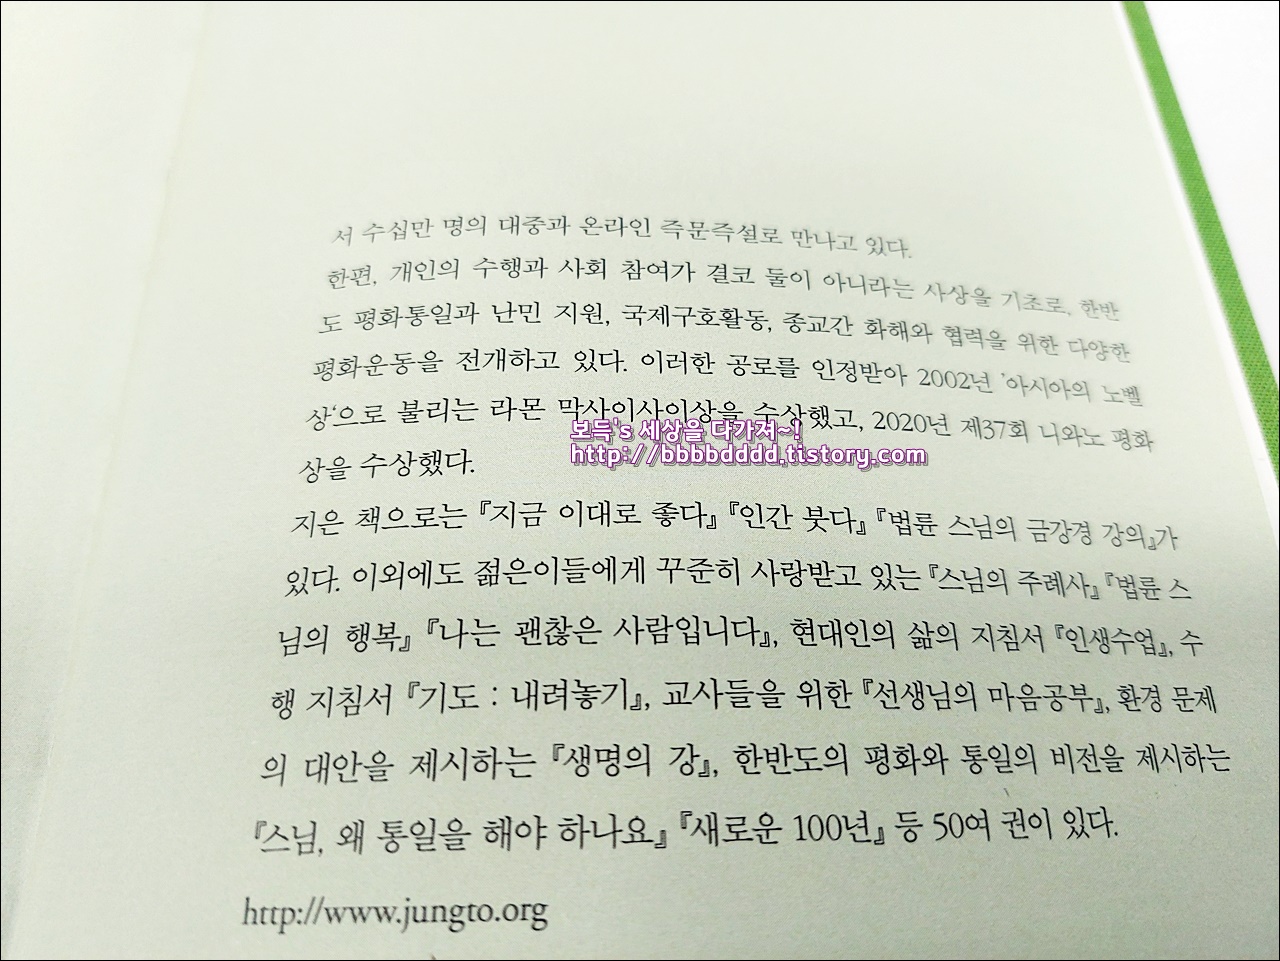 서 수십만 명의 대중과 온라인 즉문즉설로 만나고 있다.
한편, 개인의 수행과 사회 참여가 결코 둘이 아니라는 사상을 기초로, 한반
도 평화통일과 난민 지원, 국제구호활동, 종교간 화해와 협력을 위한 다양한
평화운동을 전개하고 있다. 이러한 공로를 인정받아 2002년 '아시아의 노벨
상'으로 불리는 라몬 막사이사이상을 수상했고, 2020년 제37회 니와노 평화
보득's 세상을 다가져~!
http://bbbbdddd.tistory.com
상을 수상했다.
지은 책으로는 『지금 이대로 좋다』 『인간 붓다』 『법륜 스님의 금강경 강의』가
있다. 이외에도 젊은이들에게 꾸준히 사랑받고 있는 『스님의 주례사』 『법륜 스
님의 행복』 『나는 괜찮은 사람입니다』, 현대인의 삶의 지침서 『인생수업』, 수
행 지침서 『기도 : 내려놓기』, 교사들을 위한 『선생님의 마음공부』, 환경 문제
의 대안을 제시하는 『생명의 강』, 한반도의 평화와 통일의 비전을 제시하는
『스님, 왜 통일을 해야 하나요』 『새로운 100년』 등 50여 권이 있다.
http://www.jungto.org